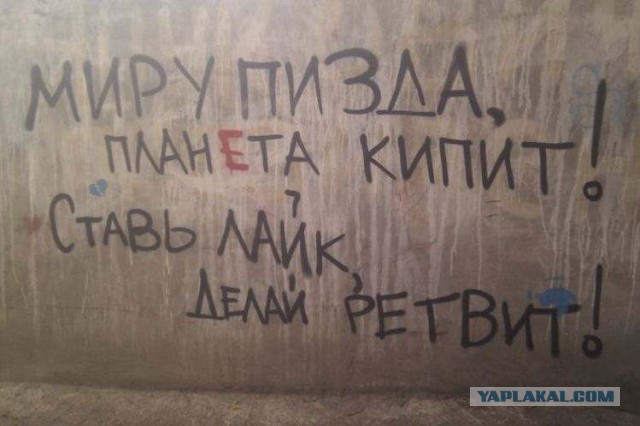 МИРУ ПИЗДА,
ПЛАНЕТА КИПИТ!
СТАВЬ ЛАЙК,
ДЕЛАЙ РЕТВИТ!
YAPLAKAL.COM